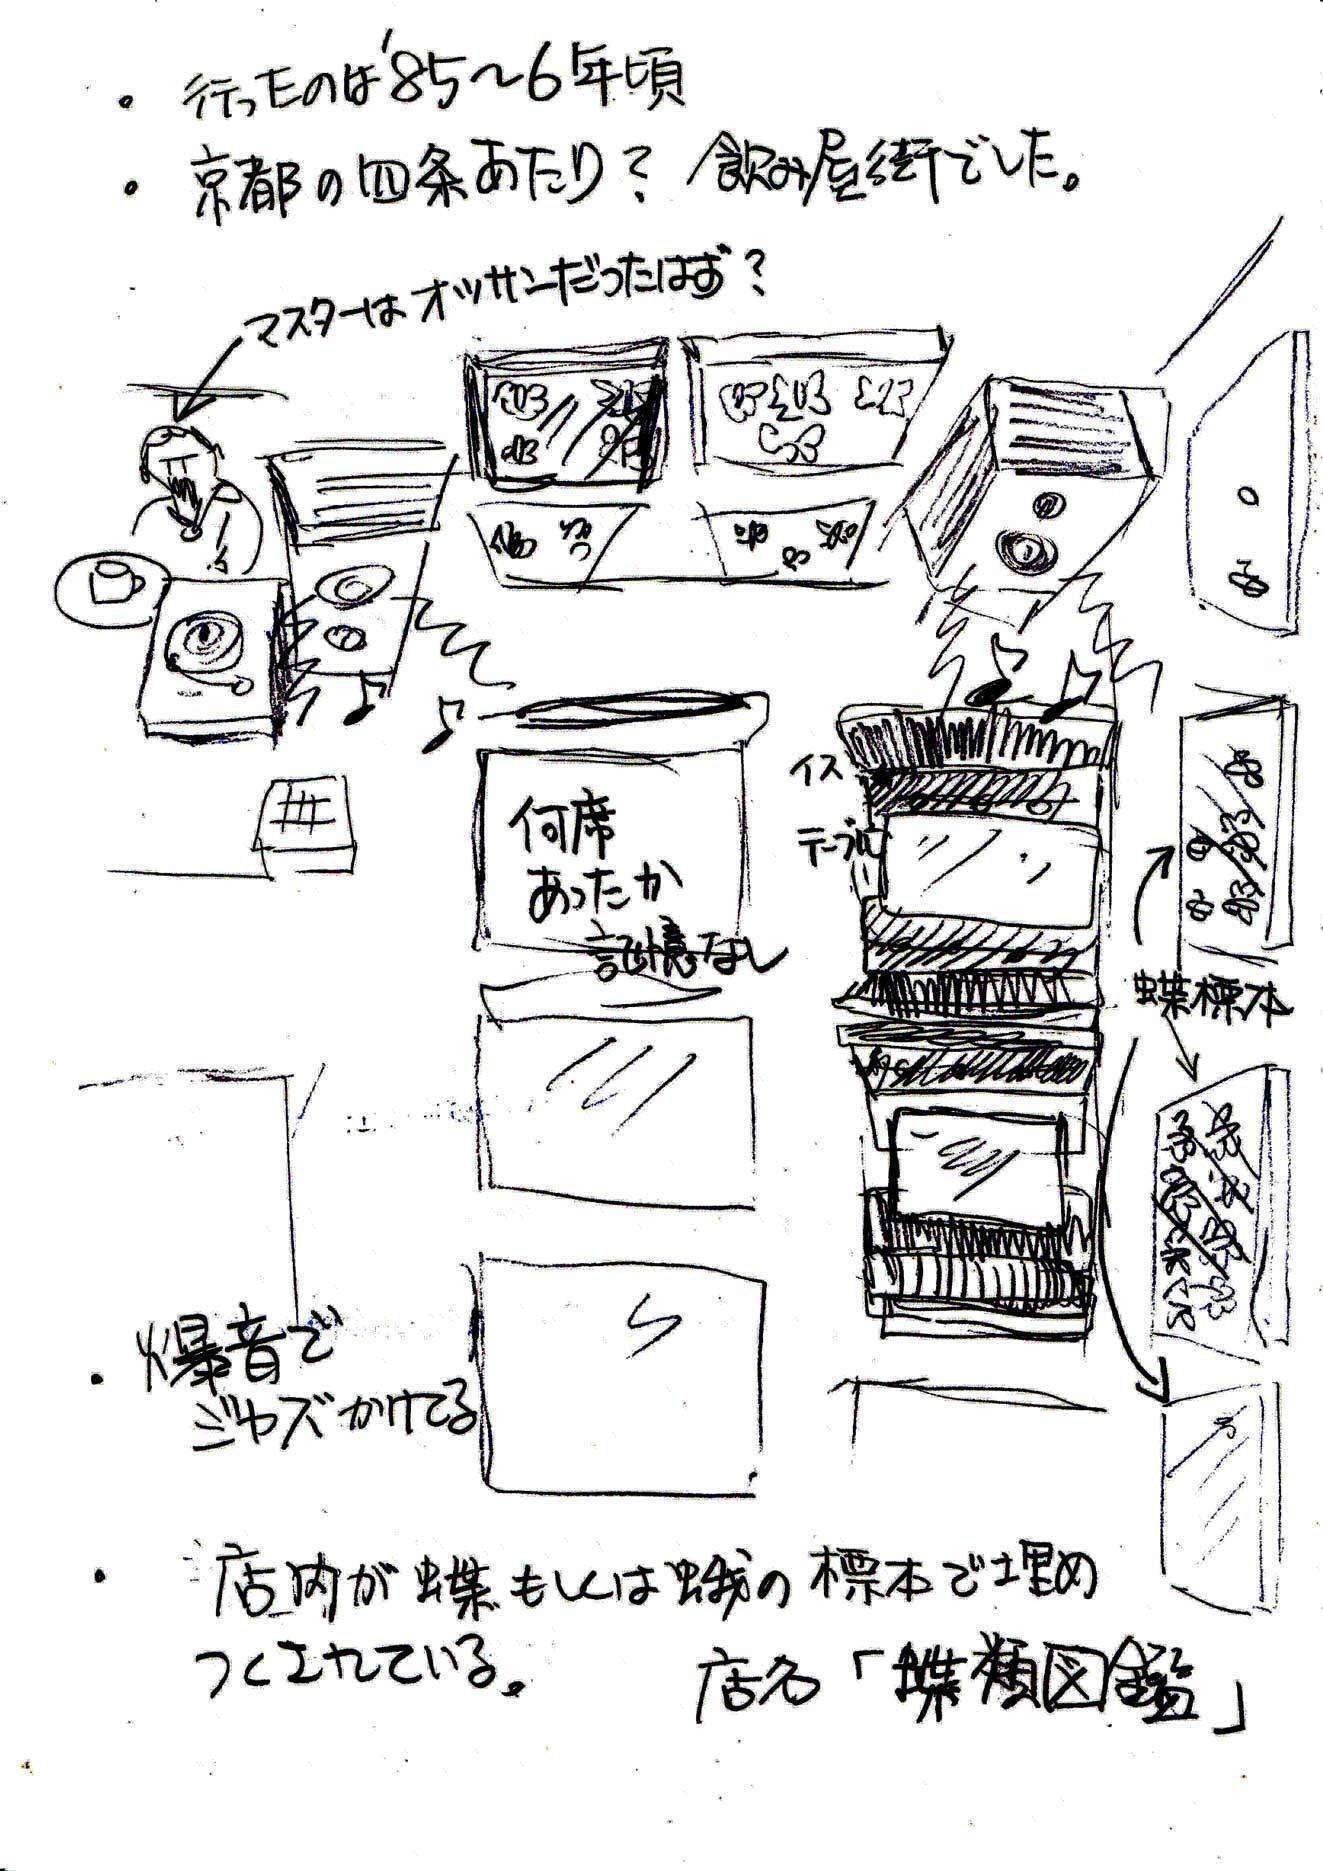 ・行ったのは'85〜6年頃
・京都の四条あたり？飲み屋街でした。
マスターはオッサンだったはず？
イス
テーブル
何席
あったか
記憶なし
蝶標本
・爆音で
ジャズかけてる
・店内が蝶もしくは蛾の標本で埋め
つくされている。
店名「蝶類図鑑」